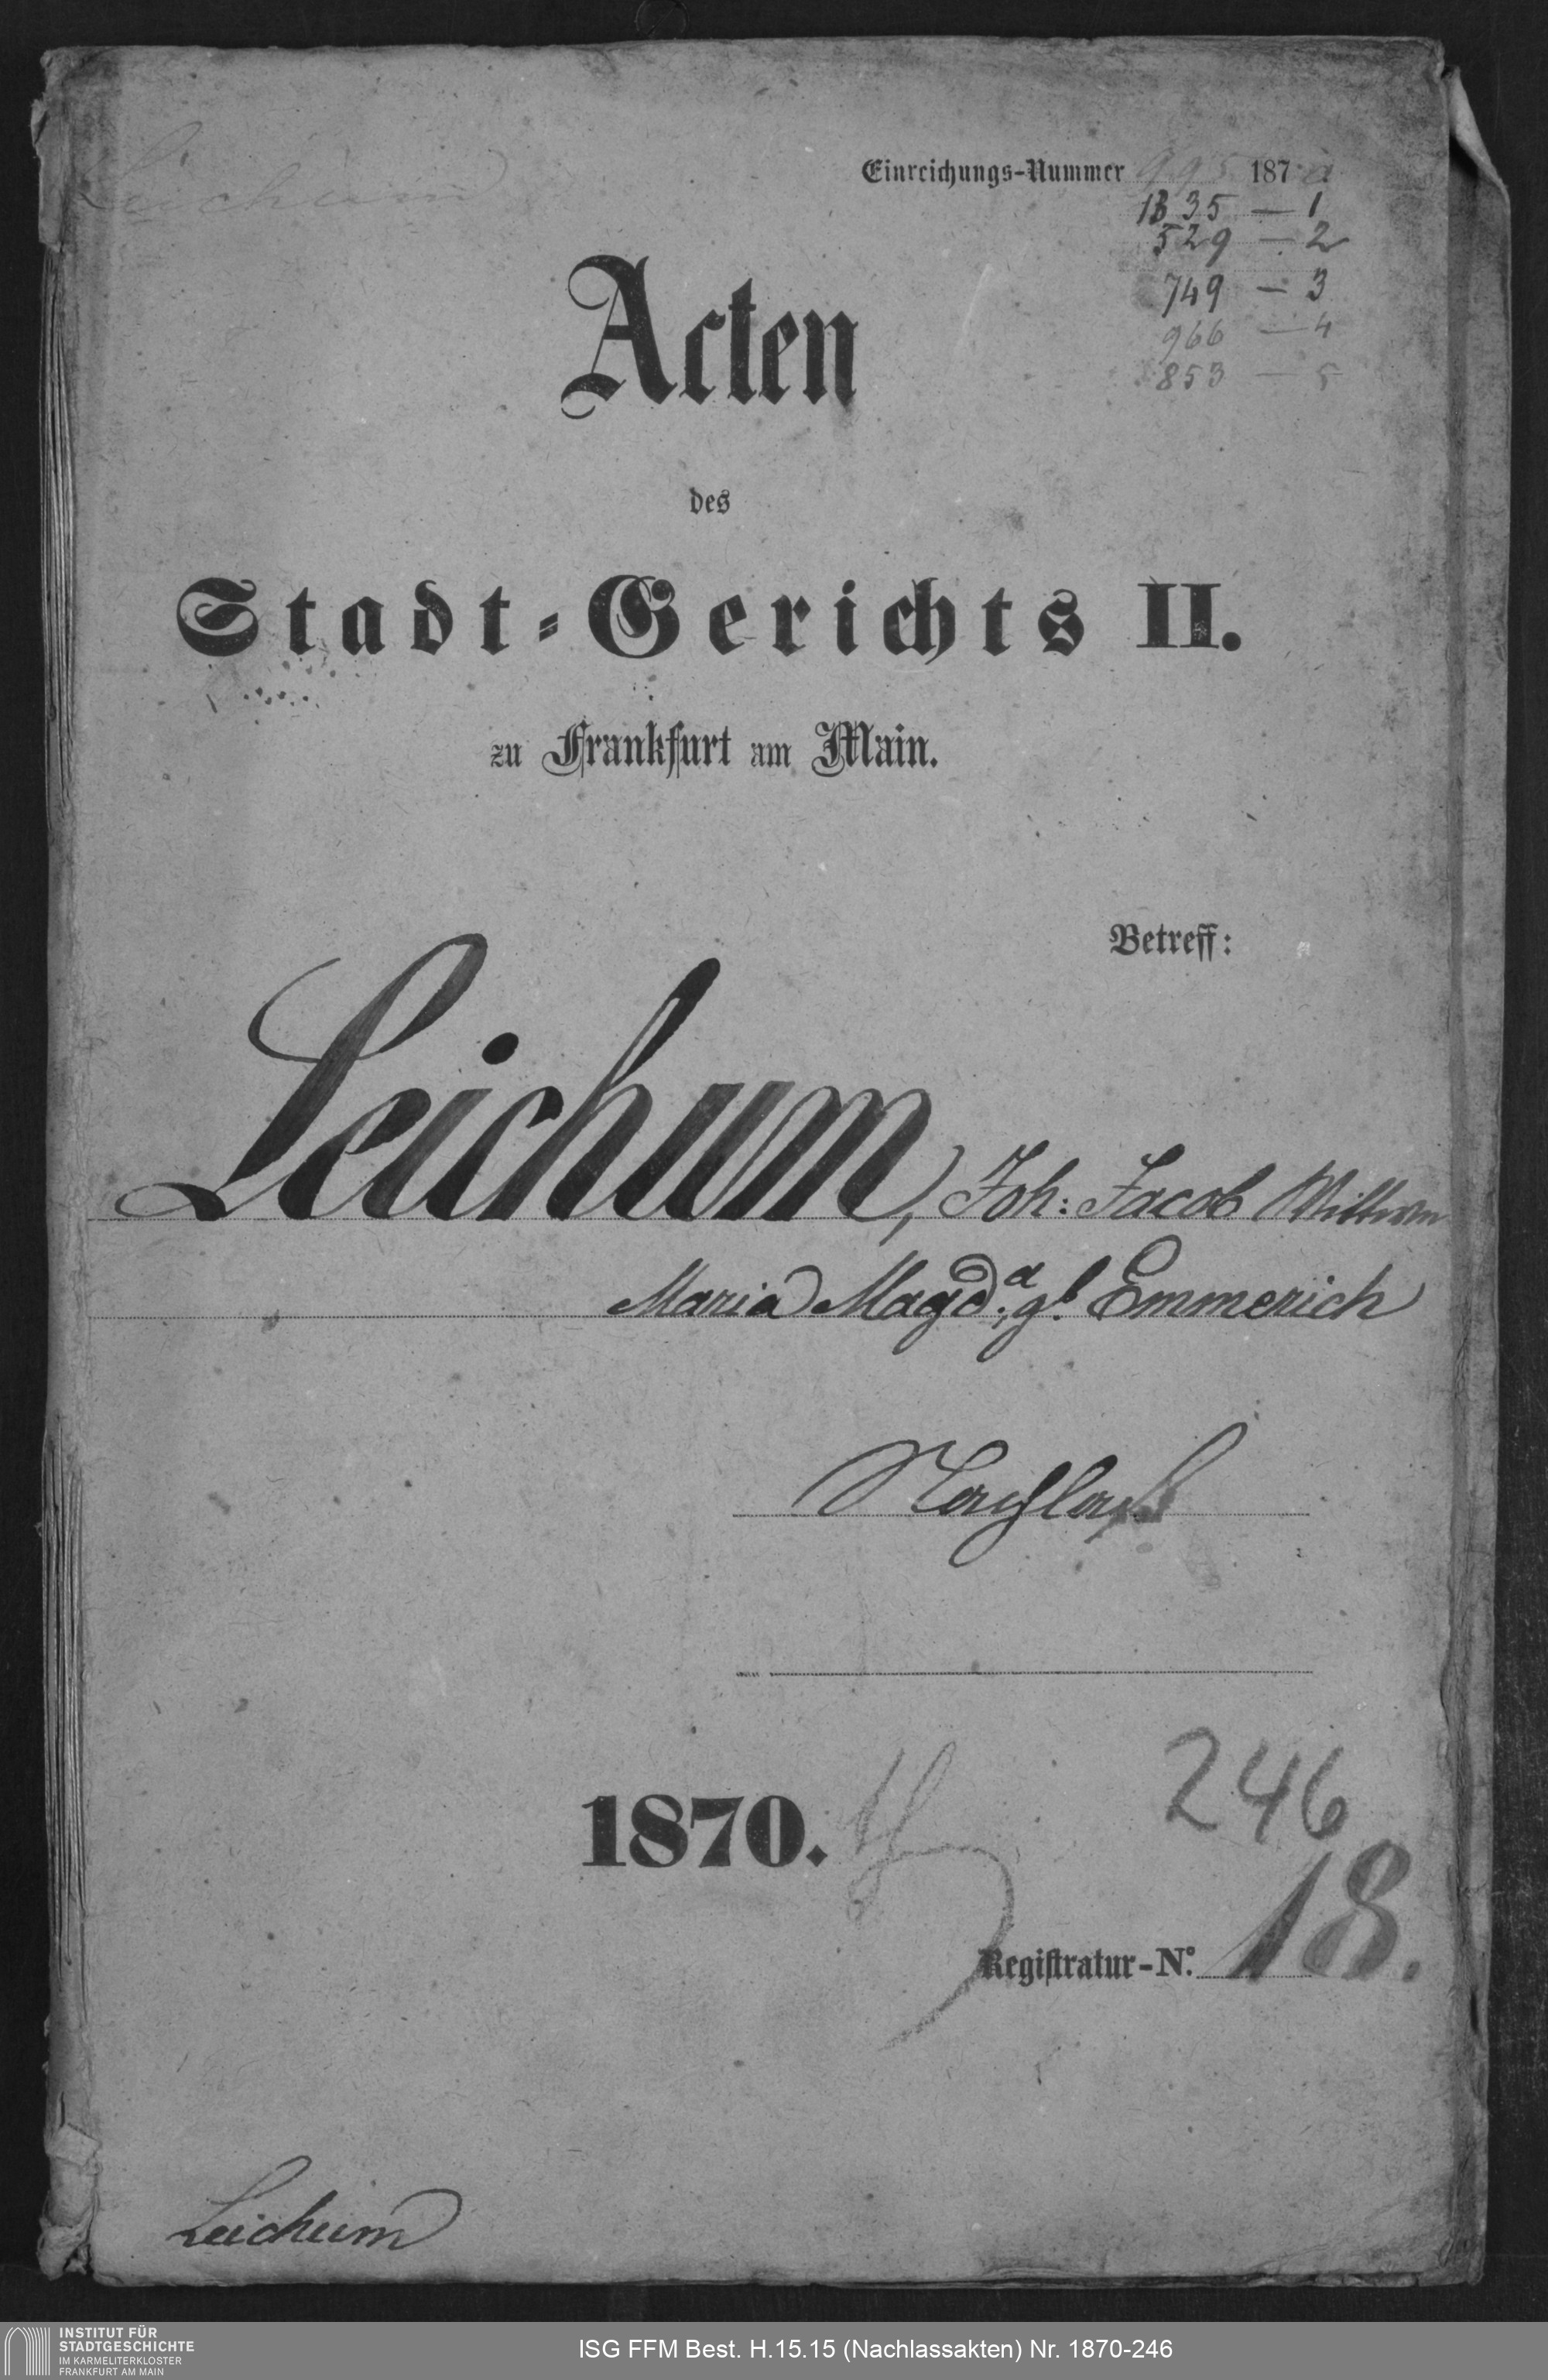 Leichum
Einreichungs-Nummer 995 187
1335 — 1
529 — 2
749 — 3
966 — 4
853 — 5
Acten
des
Stadt-Gerichts II.
zu Frankfurt am Main.
Betreff:
Leichum, Joh: Jacob Wittwe
Maria Magd.a, gb. Emmerich
Nachlaß
246
1870.
Registratur-No. 18.
Leichum
INSTITUT FÜR
STADTGESCHICHTE
IM KARMELITERKLOSTER
FRANKFURT AM MAIN
ISG FFM Best. H.15.15 (Nachlassakten) Nr. 1870-246